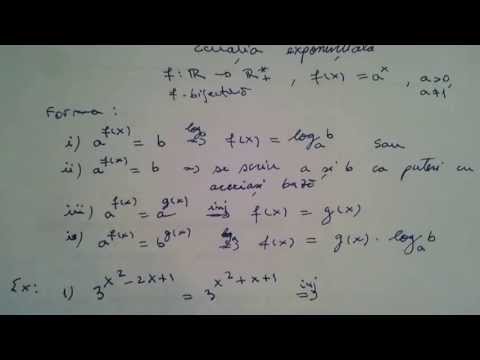 Ecuația exponențială
f: ℝ → ℝ*₊ , f(x) = aˣ , a>0, a≠1
f-bijectivă
Forma:
i) a^f(x) = b log⇒ f(x) = logₐ b sau
ii) a^f(x) = b ⇒ se scriu a și b ca puteri cu
aceeași bază
iii) a^f(x) = a^g(x) inj⇒ f(x) = g(x)
iv) a^f(x) = b^g(x) log⇒ f(x) = g(x) · logₐ b
Ex: 1) 3^(x²-2x+1) = 3^(x²+x+1) inj⇒